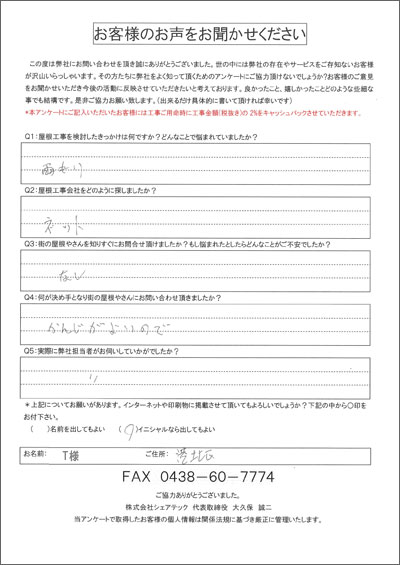 お客様のお声をお聞かせください
この度は弊社にお問い合わせを頂き誠にありがとうございました。世の中には弊社の存在やサービスをご存知ないお客様
が沢山いらっしゃいます。その方たちに弊社をよく知って頂くためのアンケートにご協力頂けないでしょうか?お客様のご意見
をお聞かせいただき今後の活動に反映させていただきたいと考えております。良かったこと、嬉しかったことどのような些細な
事でも結構です。是非ご協力お願い致します。(出来るだけ具体的に書いて頂ければ幸いです)
*本アンケートにご記入いただいたお客様には工事ご用命時に工事金額(税抜き)の 2%をキャッシュバックさせていただきます。
Q1:屋根工事を検討したきっかけは何ですか?どんなことで悩まれていましたか?
雨もり
Q2:屋根工事会社をどのように探しましたか?
ネット
Q3:街の屋根やさんを知りすぐにお問合せ頂けましたか?もし悩まれたとしたらどんなことがご不安でしたか?
なし
Q4:何が決め手となり街の屋根やさんにお問い合わせ頂きましたか?
かんじがよいので
Q5:実際に弊社担当者がお伺いしていかがでしたか?
〃
*上記についてお願いがあります。インターネットや印刷物に掲載させて頂いてもよろしいでしょうか?下記の中から○印を
お付下さい。
( )名前を出してもよい ( )イニシャルなら出してもよい
お名前: T様 ご住所: 港北区
FAX 0438-60-7774
ご協力ありがとうございました。
株式会社シェアテック 代表取締役 大久保 誠二
当アンケートで取得したお客様の個人情報は関係法規に基づき厳正に管理いたします。